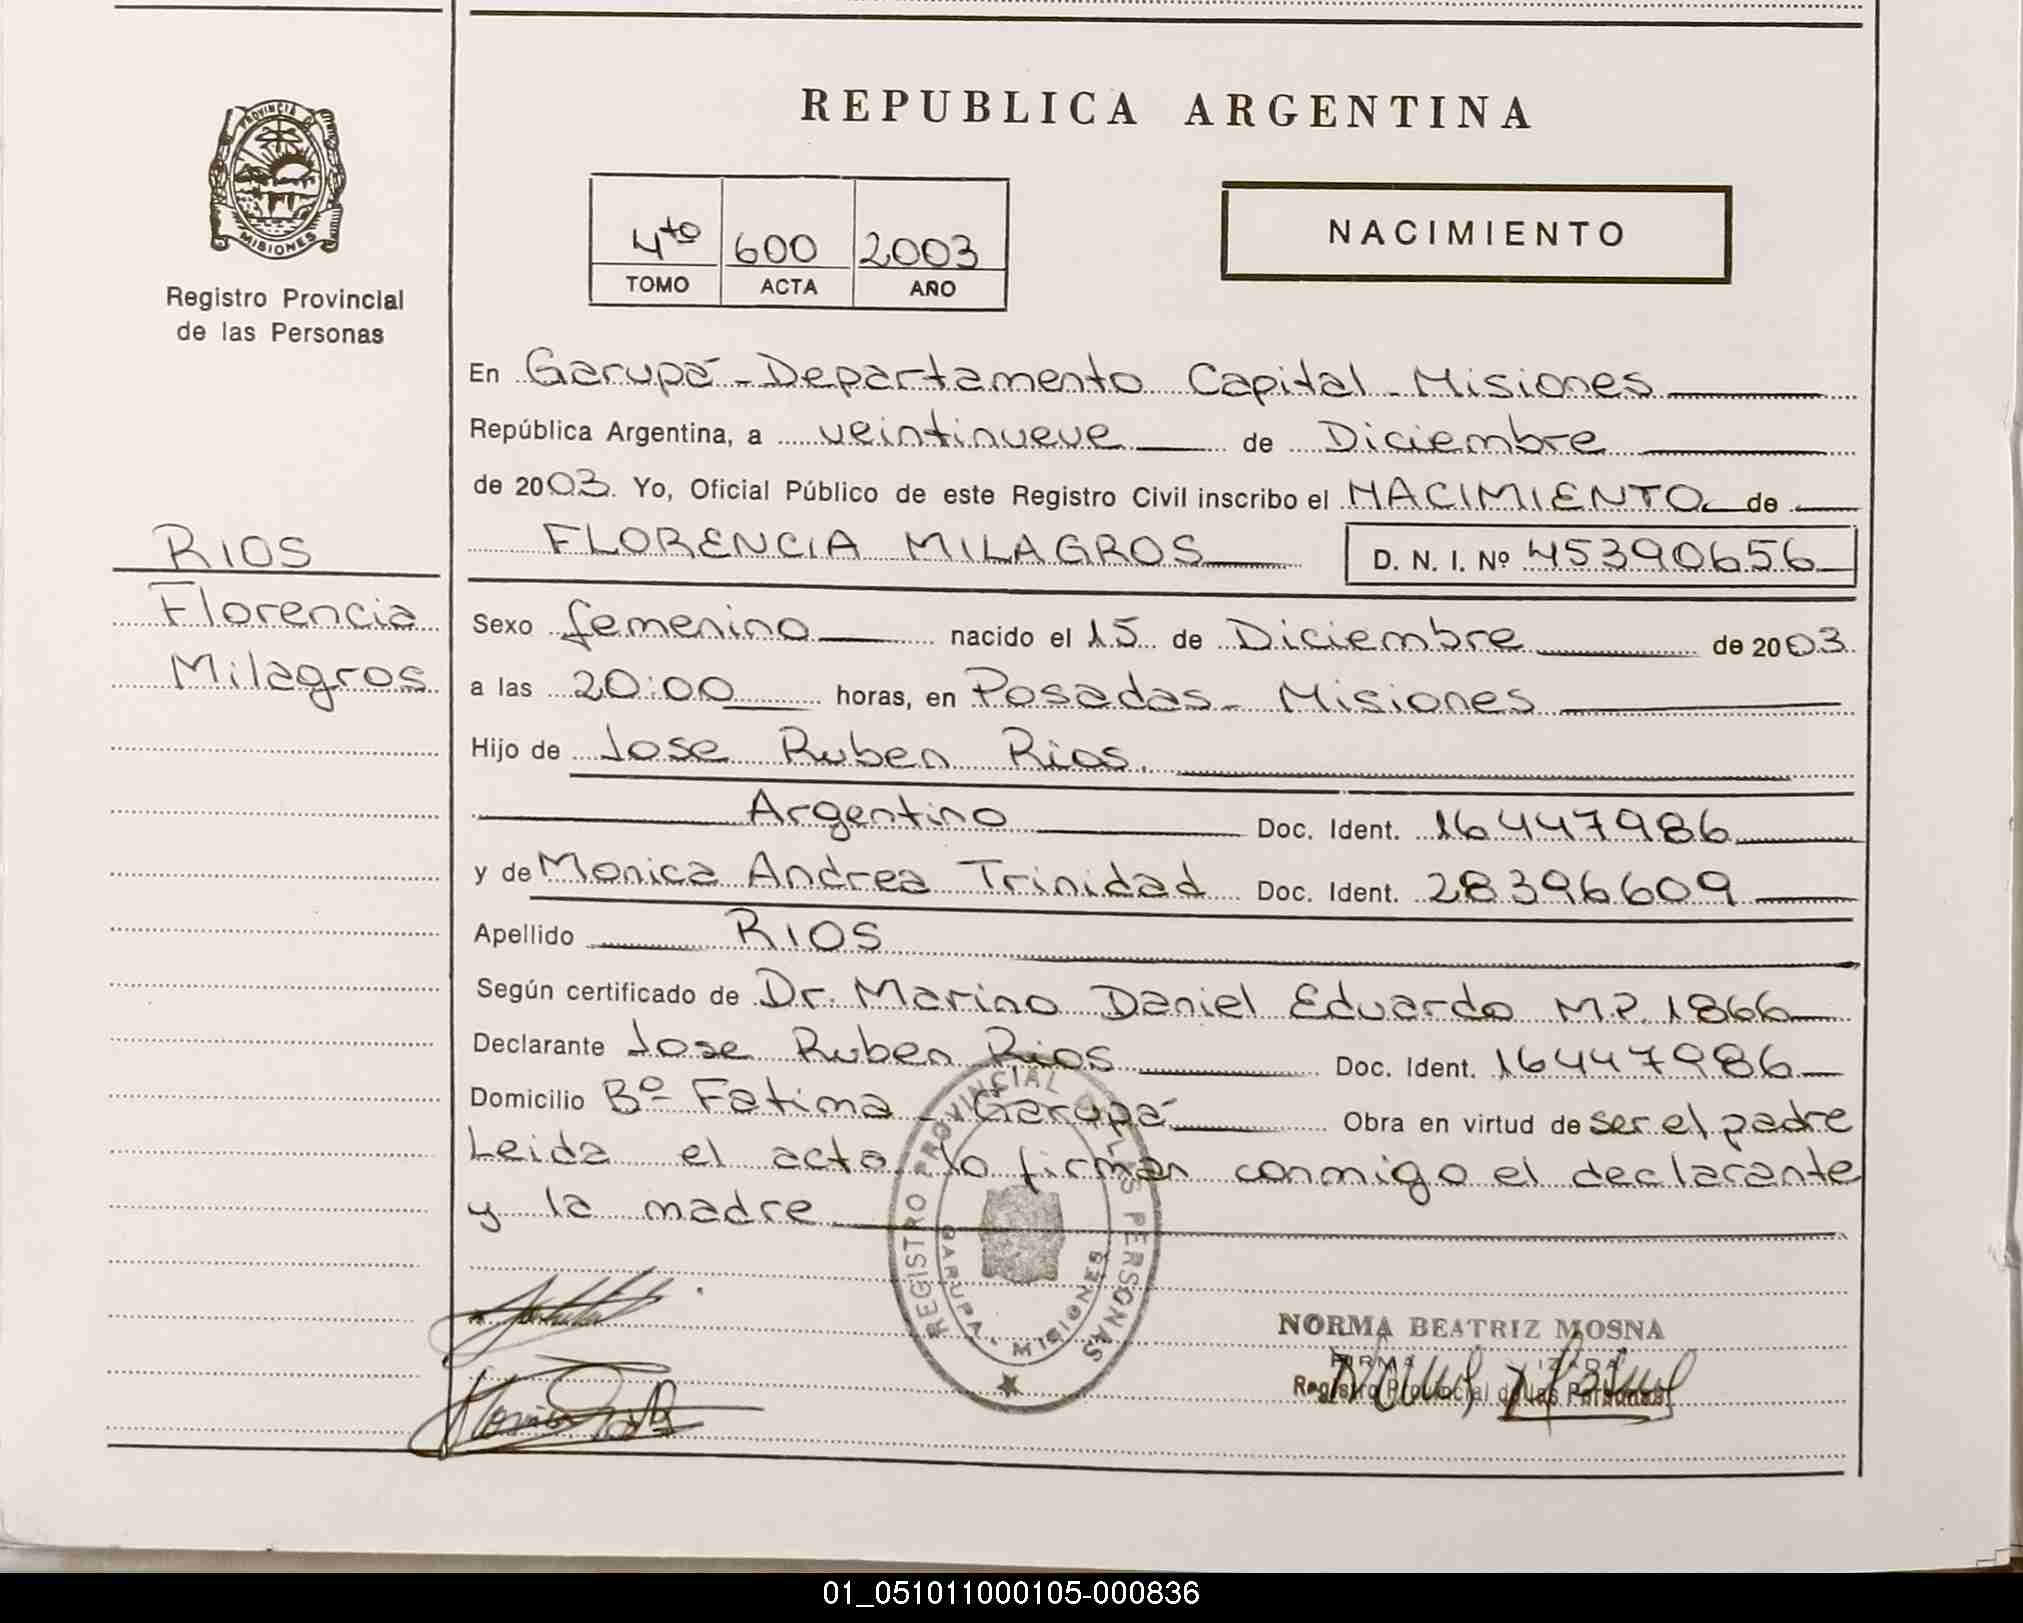 REPUBLICA ARGENTINA
PROVINCIA DE
MISIONES
Registro Provincial
de las Personas
4to 600 2003
TOMO ACTA AÑO
NACIMIENTO
En Garupá - Departamento Capital - Misiones
República Argentina, a veintinueve de Diciembre
de 2003. Yo, Oficial Público de este Registro Civil inscribo el NACIMIENTO de
RIOS
FLORENCIA MILAGROS D. N. I. Nº 45390656
Florencia
Sexo femenino nacido el 15 de Diciembre de 2003
Milagros
a las 20:00 horas, en Posadas - Misiones
Hijo de Jose Ruben Rios.
Argentino Doc. Ident. 16447986
y de Monica Andrea Trinidad Doc. Ident. 28396609
Apellido RIOS
Según certificado de Dr. Marino Daniel Eduardo M.P. 1866
Declarante Jose Ruben Rios Doc. Ident. 16447986
Domicilio Bº Fatima - Garupá Obra en virtud de ser el padre
Leida el acta lo firman conmigo el declarante
y la madre
REGISTRO PROVINCIAL DE LAS PERSONAS
GARUPA - MISIONES
NORMA BEATRIZ MOSNA
Registro Provincial de las Personas
01_051011000105-000836